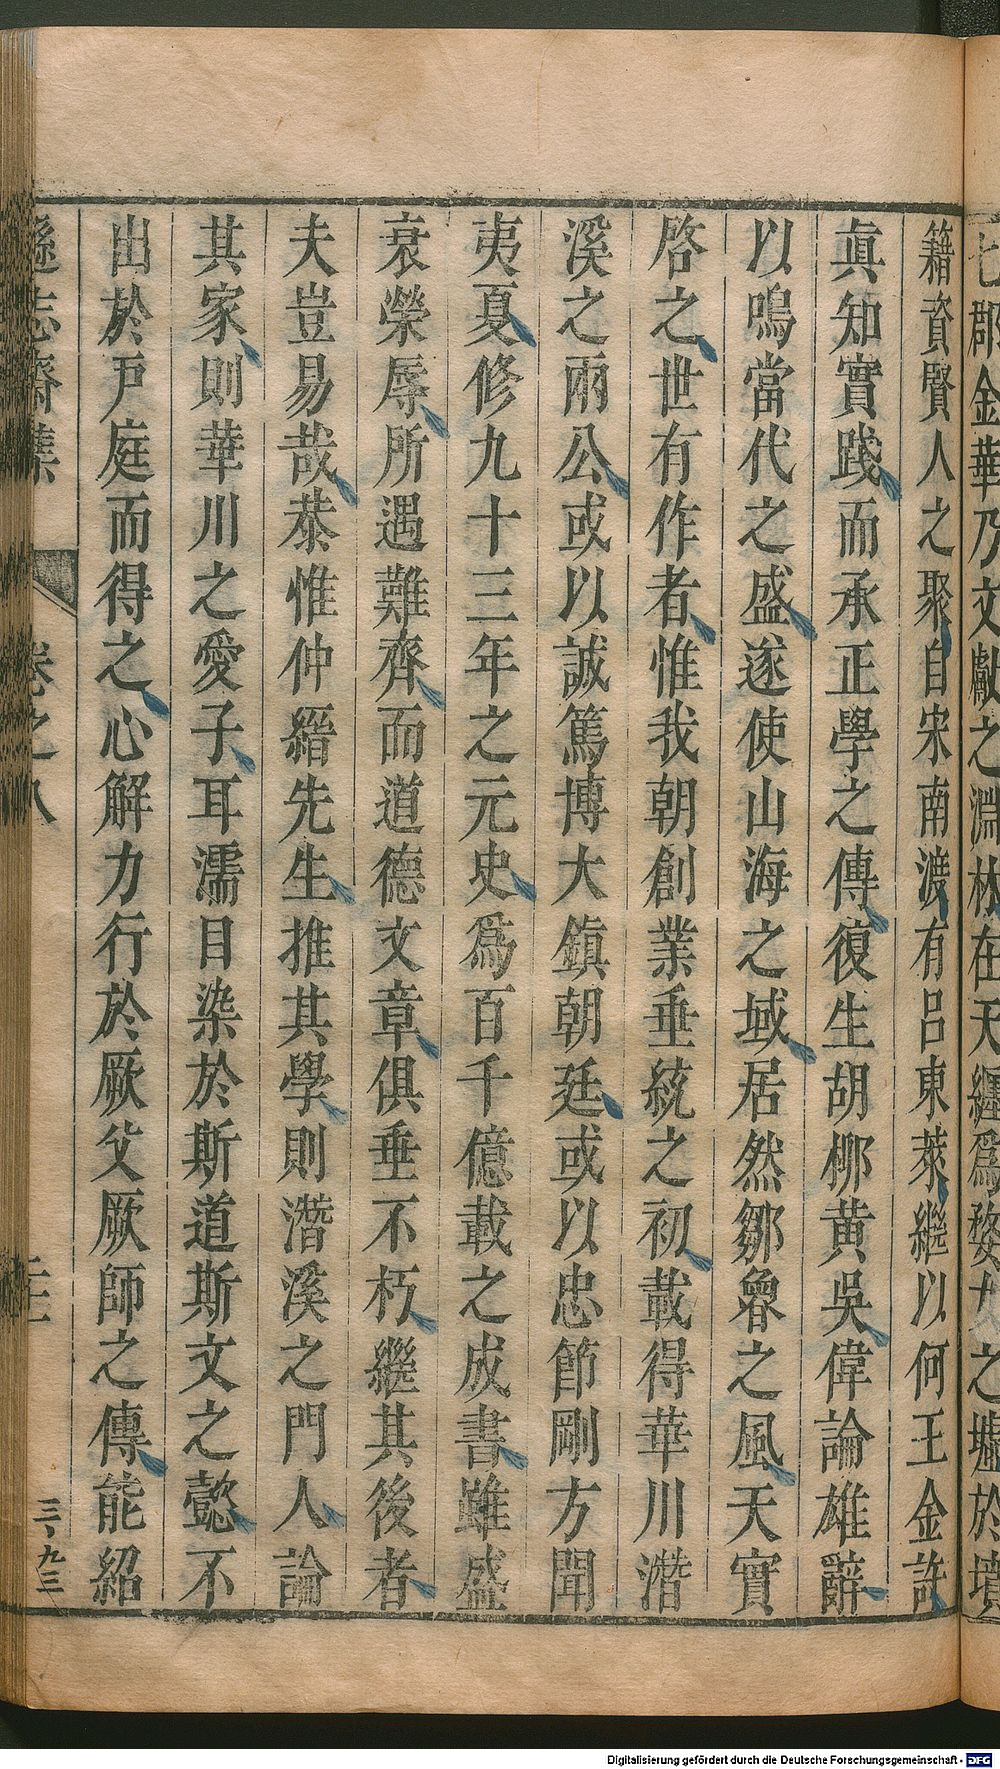 七郡金華乃文獻之淵林在天纒爲婺女之墟於墳
籍資賢人之聚自宋南渡有呂東萊繼以何王金許
眞知實踐而承正學之傳復生胡栁黄吳偉論雄辭
以鳴當代之盛遂使山海之域居然鄒魯之風天實
啓之世有作者惟我朝創業垂統之初載得華川潛
溪之兩公或以誠篤博大鎮朝廷或以忠節剛方聞
夷夏修九十三年之元史爲百千億載之成書雖盛
衰榮辱所遇難齊而道德文章俱垂不朽繼其後者
夫豈易哉恭惟仲縉先生推其學則潛溪之門人論
其家則華川之愛子耳濡目染於斯道斯文之懿不
出於戸庭而得之心解力行於厥父厥師之傳能紹
遜志齋集
卷之八
三九三
Digitalisierung gefördert durch die Deutsche Forschungsgemeinschaft - DFG